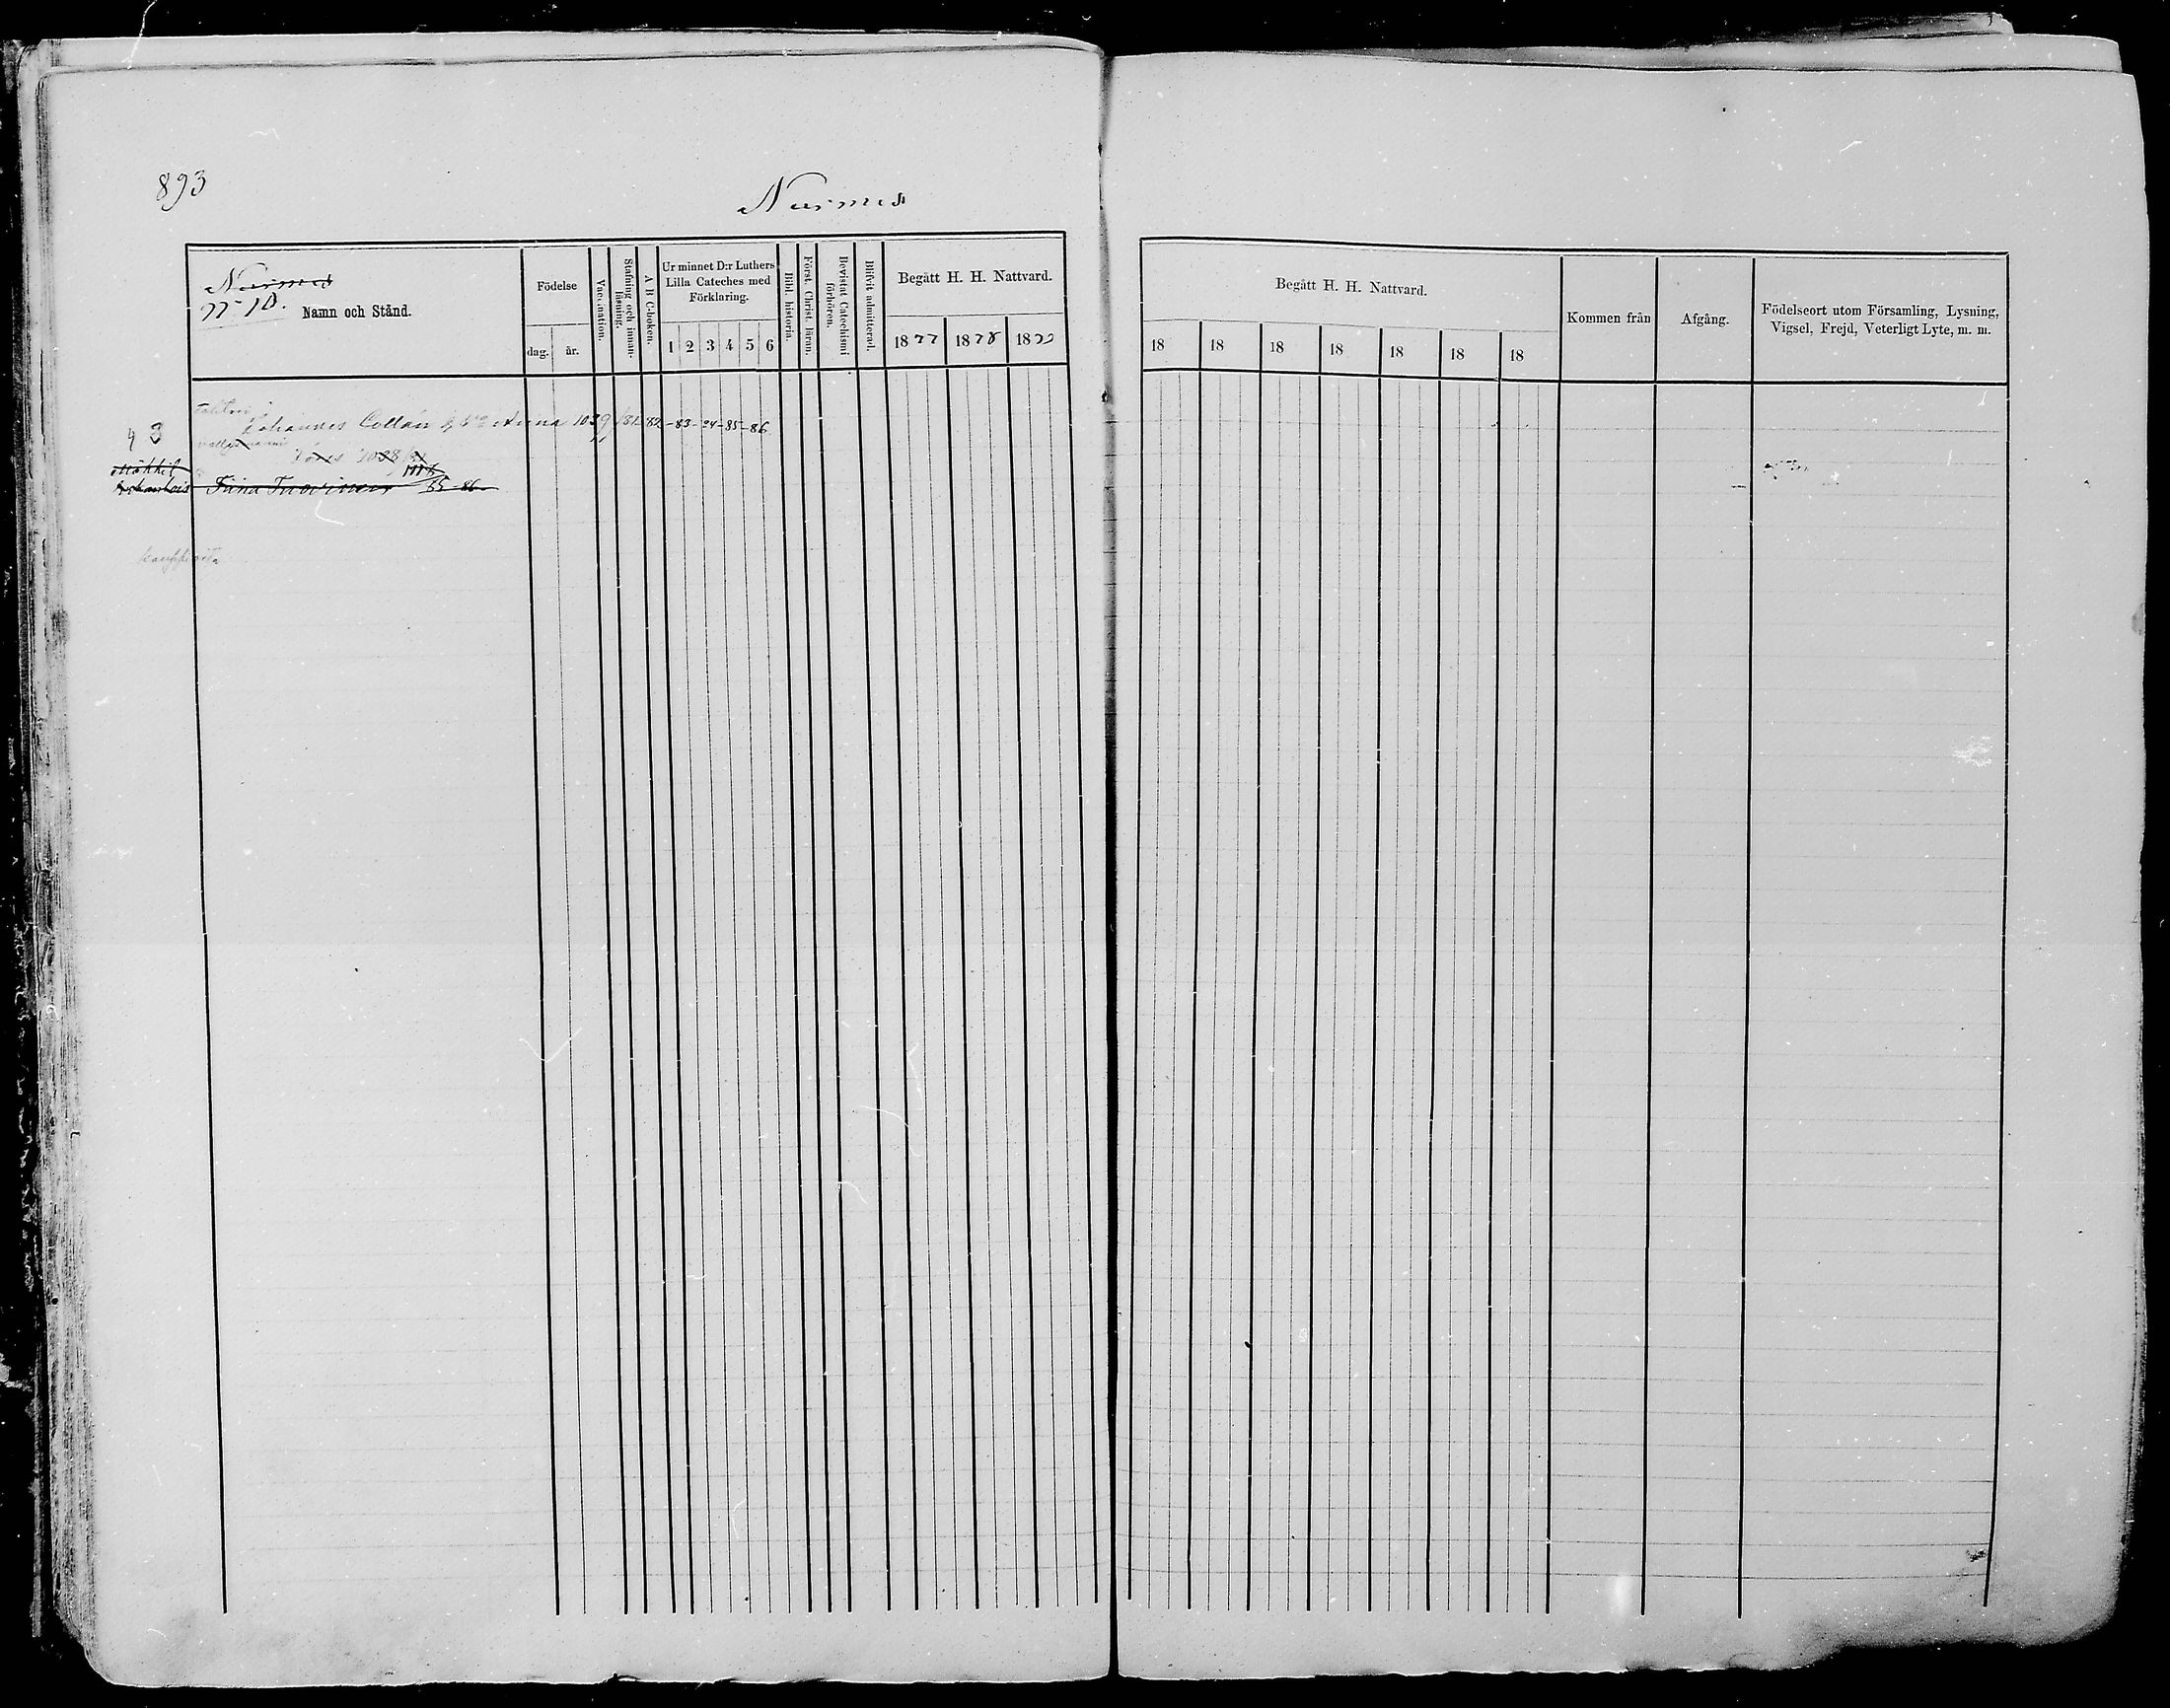 893
Nurmes
Nurmes
Namn och Stånd.
Födelse
dag.
år.
Vaccination.
Stafning och innanläsning.
A B C-boken.
Ur minnet D:r Luthers
Lilla Cateches med
Förklaring.
1 2 3 4 5 6
Bibl. historia.
Först. Christ. läran.
Bevistat Catechismi förhören.
Blifvit admitterad.
Begått H. H. Nattvard.
1877 1878 1879
Begått H. H. Nattvard.
18 18 18 18 18 18 18
Kommen från
Afgång.
Födelseort utom Församling, Lysning,
Vigsel, Frejd, Veterligt Lyte, m. m.
Johannes Collan Anna 1039 /81-82-83-84-85-86
Tiina Tuovinen 85-86